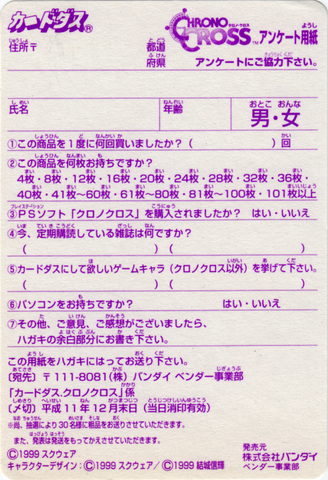 カードダス®
CHRONO CROSS™ クロノ・クロス アンケート用紙
住所〒 都道府県 アンケートにご協力下さい。
氏名 年齢 男・女
①この商品を1度に何回買いましたか？（ ）回
②この商品を何枚お持ちですか？
4枚・8枚・12枚・16枚・20枚・24枚・28枚・32枚・36枚・
40枚・41枚〜60枚・61枚〜80枚・81枚〜100枚・101枚以上
③PSソフト「クロノクロス」を購入されましたか？ はい・いいえ
④今、定期購読している雑誌は何ですか？
（ ）（ ）（ ）
⑤カードダスにして欲しいゲームキャラ（クロノクロス以外）を挙げて下さい。
（ ）（ ）
⑥パソコンをお持ちですか？ はい・いいえ
⑦その他、ご意見、ご感想がございましたら、
ハガキの余白部分にお書き下さい。
この用紙をハガキにはってお送り下さい。
〔宛先〕〒111-8081（株）バンダイ ベンダー事業部
「カードダス．クロノクロス」係
〔〆切〕平成11年12月末日（当日消印有効）
※尚、抽選により30名様に粗品をお送りさせていただきます。
また、発表は発送をもってかえさせていただきます。
©1999 スクウェア
キャラクターデザイン：©1999 スクウェア／©1999 結城信輝
発売元
株式会社バンダイ
ベンダー事業部